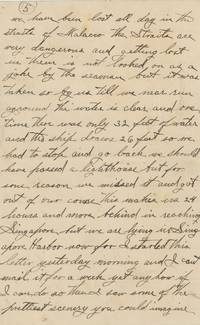 (5)
we have been lost all day in the
straits of Malacca the Straits are
very dangerous and getting lost
in them is not looked on as a
joke by the seaman but it was
taken so by us till we near run
aground the water is clear and one
time there was only 32 feet of water
and the ship draws 26 feet so we
had to stop and go back we should
have passed a Lighthouse but for
some reason we missed it and got
out of our course this makes us 24
hours and more behind in reaching
Singapore but we are lying in Sing
apore Harbor now for I started this
letter yesterday morning and I cant
mail it for a week yet anyhow if
I can do so then I saw some of the
prettiest scenery you could imagine